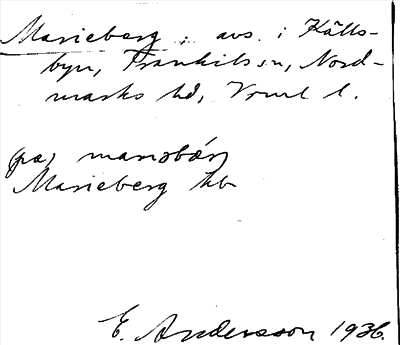 Marieberg: avs. i Källs-
byn, Frankils sn, Nord-
marks hd, Vrml l.
(på) marıəbær̨
Marieberg hb
E. Andersson 1936.